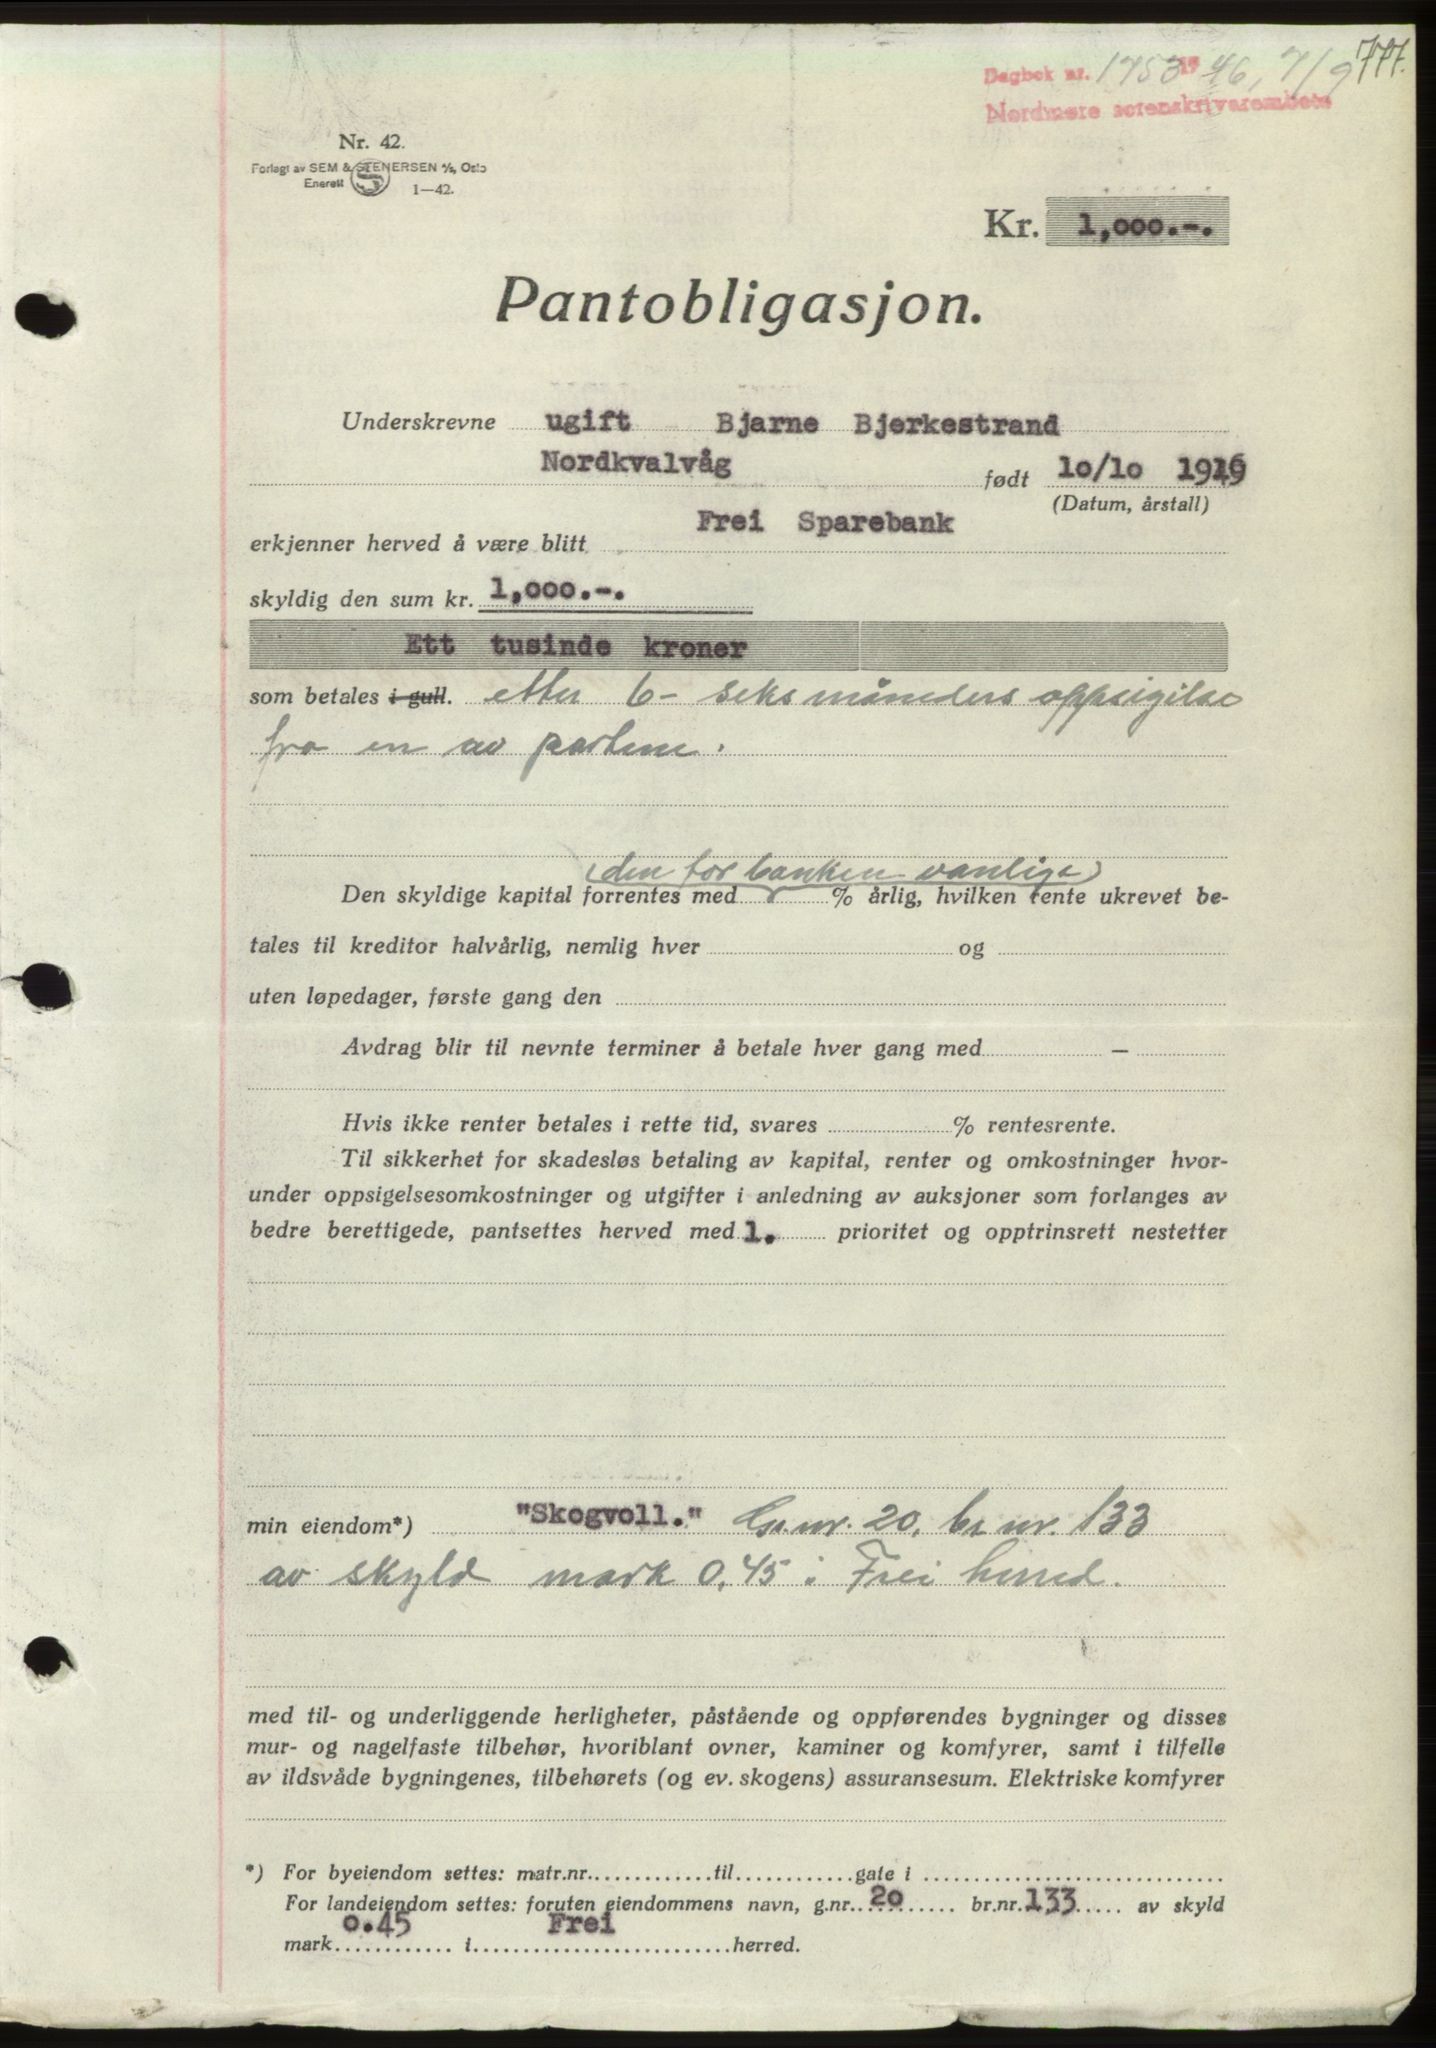 Dagbok nr. 1753 1946, 7/9 777.
Nordmøre sorenskriverembete
Nr. 42.
Forlagt av SEM & STENERSEN A/S, Oslo
Enerett 1—42.
Kr. 1,000.-.
Pantobligasjon.
Underskrevne ugift Bjarne Bjerkestrand
Nordkvalvåg født 10/10 1916
(Datum, årstall)
Frei Sparebank
erkjenner herved å være blitt
skyldig den sum kr. 1,000.-.
Ett tusinde kroner
som betales i gull. etter 6- seks måneders oppsigilse
fra en av partene.
den for banken vanlige
Den skyldige kapital forrentes med % årlig, hvilken rente ukrevet be-
tales til kreditor halvårlig, nemlig hver og
uten løpedager, første gang den
Avdrag blir til nevnte terminer å betale hver gang med —
Hvis ikke renter betales i rette tid, svares % rentesrente.
Til sikkerhet for skadesløs betaling av kapital, renter og omkostninger hvor-
under oppsigelsesomkostninger og utgifter i anledning av auksjoner som forlanges av
bedre berettigede, pantsettes herved med 1. prioritet og opptrinsrett nestetter
min eiendom*) "Skogvoll." Gr.nr. 20, br nr. 133
av skyld mark 0,45 i Frei herred.
med til- og underliggende herligheter, påstående og oppførendes bygninger og disses
mur- og nagelfaste tilbehør, hvoriblant ovner, kaminer og komfyrer, samt i tilfelle
av ildsvåde bygningenes, tilbehørets (og ev. skogens) assuransesum. Elektriske komfyrer
*) For byeiendom settes: matr.nr.............til............gate i ..............................
For landeiendom settes: foruten eiendommens navn, g.nr. 20 br.nr. 133 av skyld
mark 0.45 i Frei herred.